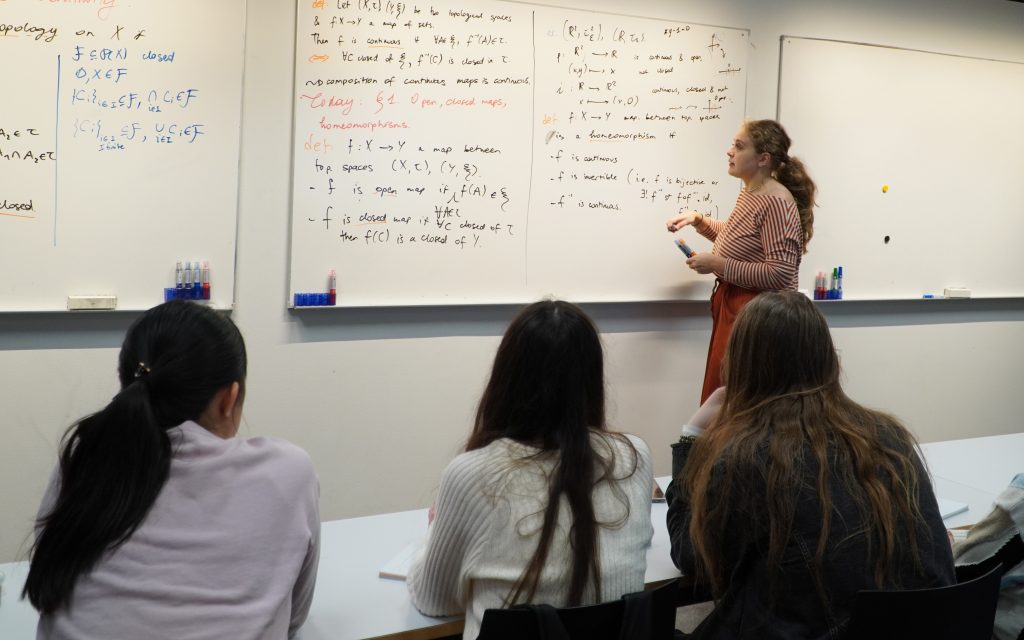 opology on X if
F ⊆ P(X) closed
∅, X ∈ F
{Ci}i∈I ⊆ F, ∩i∈I Ci ∈ F
{Ci}i∈I ⊆ F, ∪i∈I Ci ∈ F
I finite
A1 ∈ τ
A1 ∩ A2 ∈ τ
closed
def. Let (X,τ) (Y,ξ) be two topological spaces
& f: X → Y a map of sets.
Then f is continuous if ∀A∈ξ, f⁻¹(A) ∈ τ.
⟺ ∀C closed of ξ, f⁻¹(C) is closed in τ.
⇝ composition of continuous maps is continuous.
Today: §1. Open, closed maps,
homeomorphisms.
def: f: X → Y a map between
top. spaces (X,τ), (Y,ξ).
- f is open map if f(A) ∈ ξ
∀A∈τ
- f is closed map if ∀C closed of τ
then f(C) is a closed of Y.
p: R² → R is continuous & open,
(x,y) ↦ x not closed
i: R → R² continuous, closed & not
x ↦ (x,0) open.
def f: X → Y map between top. spaces
is a homeomorphism if
- f is continuous
- f is invertible (i.e. f is bijective or
∃! f⁻¹
- f⁻¹ is continuous.